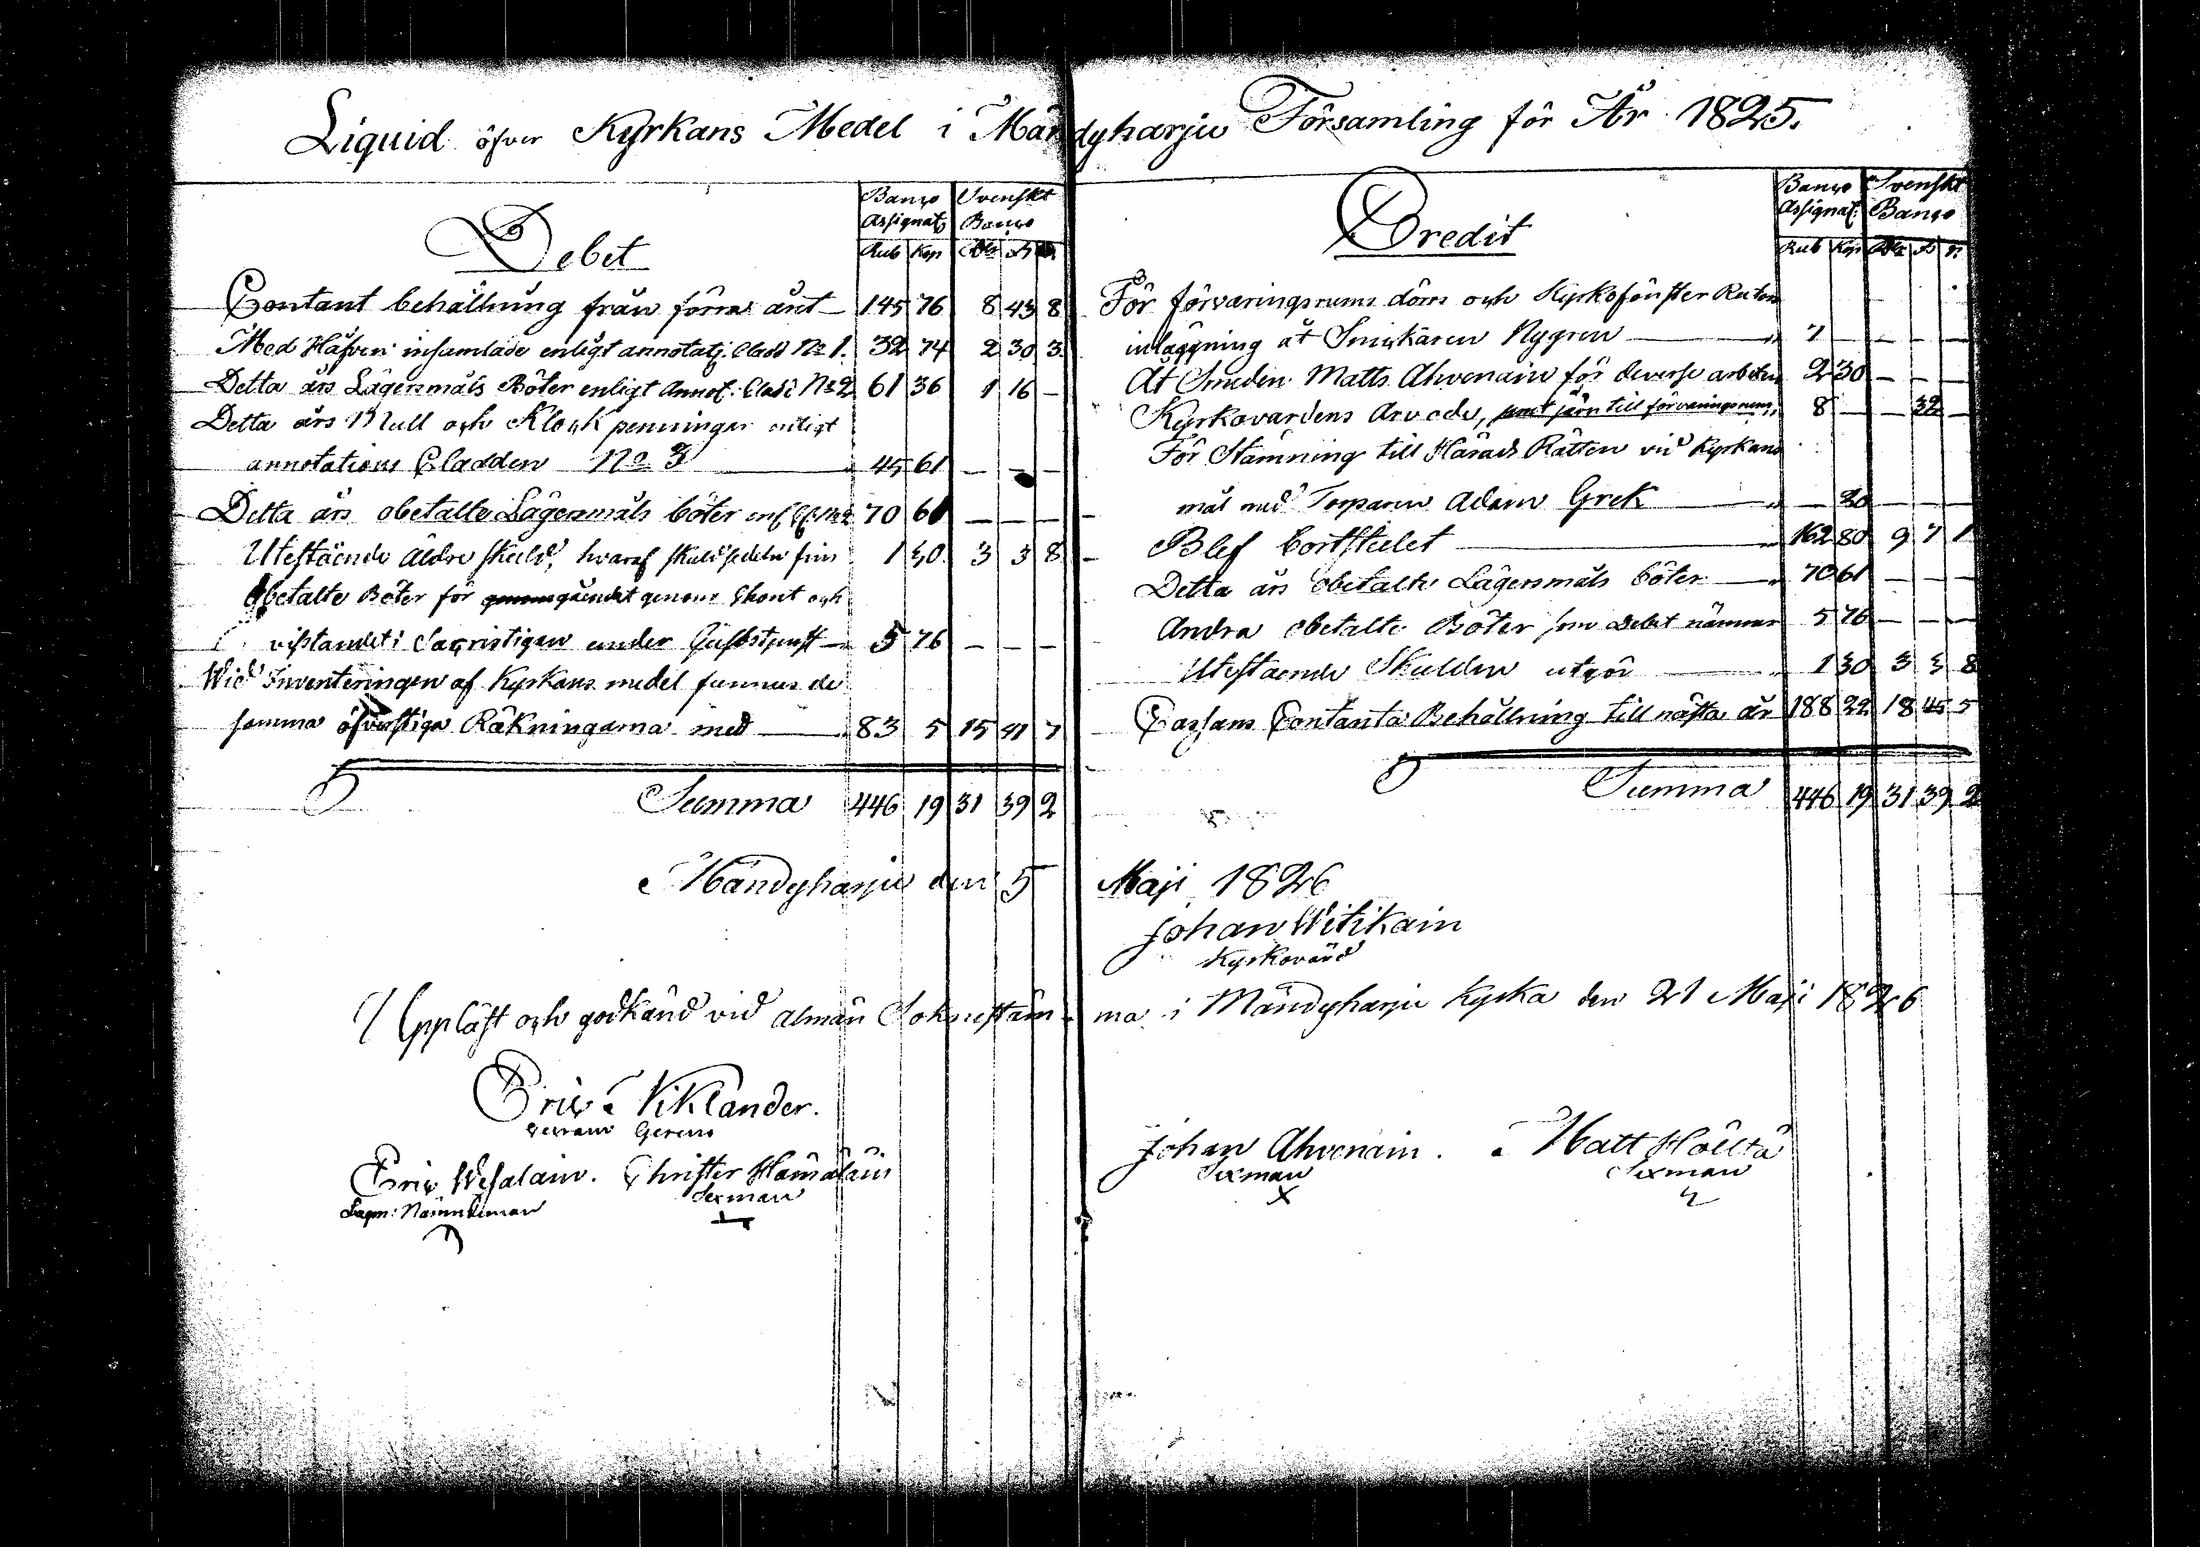 Liquid öfver Kyrkans Medel i Mändyharju Församling för År 1825.
Debet
Banco Assignat. Svenskt Banco
Rub Kop Rdr S r.
Contant behållning från förra året 145 76 8 43 8
Med Håfven insamlade enligt annotatj. Cladd No 1. 32 74 2 30 3
Detta års Lägersmåls Böter enligt Annot. Clad: No 2 61 36 1 16 —
Detta års Mull och Klock penningar enligt
annotations Cladden No 3 45 61 — — —
Detta års obetalte Lägersmåls böter enl. No 2 70 61 — — —
Utestående äldre skuld, hvaraf skuldsedeln fins 1 30 3 3 8
Obetalte Böter för genom och
vistandet i Sacristigan under Gudstjenst 5 76 — — —
Wid Inventeringen af Kyrkans medel funnos de
samma öfverstiga Räkningarna med 83 5 15 41 7
Summa 446 19 31 39 2
Credit
Banco Assignat. Svenskt Banco
Rub Kop Rdr S r.
För förvaringsrums dörr och Kyrkofönster Rutors
inläggning åt Snickaren Nygren 7 — — — —
Åt Smeden Matts Ahvenain för diverse arbeten 2 30 — — —
Kyrkovärdens Arvode, samt järn till förvaringsrum, 8 — — 32 —
För Stämning till Härads Rätten vid Kyrkans
mål med Torparen Adam Grek — 20 — — —
Blef bortstulet 162 80 9 7 1
Detta års obetalte Lägersmåls böter 70 61 — — —
Andra obetalte Böter som Debet nämner 5 76 — — —
Utestående Skulden utgör 1 30 3 3 8
Cassans Contanta Behållning till nästa år 188 22 18 45 5
Summa 446 19 31 39 2
Mändyharju den 5 Maji 1826
Johan Witikain
Kyrkovärd
Uppläst och godkänd vid alman Soknestämma i Mändyharju Kyrka den 21 Maji 1826
Eric Wiklander.
Eric Wesalain. Christer Hämäläin
Lagm: Nämndeman Sexman
Johan Ahvenain. Matt Höltta
Sexman Sexman
X